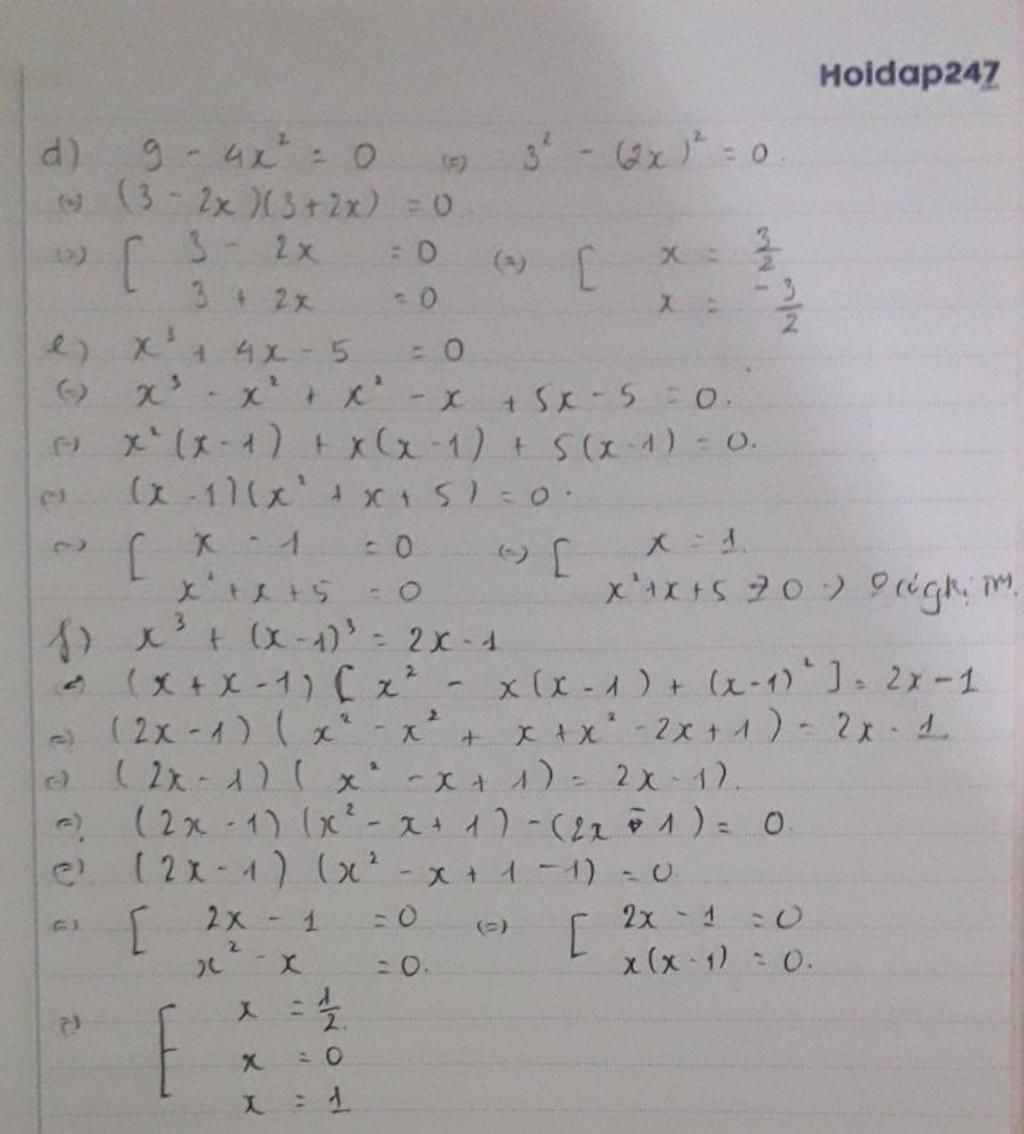 Hoidap247
d) 9 - 4x² = 0 (=) 3² - (2x)² = 0.
(=) (3 - 2x)(3 + 2x) = 0
(=) [ 3 - 2x = 0 (=) [ x = 3/2
3 + 2x = 0 x = -3/2
e) x³ + 4x - 5 = 0
(=) x³ - x² + x² - x + 5x - 5 = 0.
(=) x²(x - 1) + x(x - 1) + 5(x - 1) = 0.
(=) (x - 1)(x² + x + 5) = 0.
(=) [ x - 1 = 0 (=) [ x = 1.
x² + x + 5 = 0 x² + x + 5 > 0 →
f) x³ + (x - 1)³ = 2x - 1
(=) (x + x - 1) [x² - x(x - 1) + (x - 1)²] = 2x - 1
(=) (2x - 1) (x² - x² + x + x² - 2x + 1) = 2x - 1
(=) (2x - 1) (x² - x + 1) = 2x - 1).
(=) (2x - 1) (x² - x + 1) - (2x - 1) = 0.
(=) (2x - 1) (x² - x + 1 - 1) = 0
(=) [ 2x - 1 = 0 (=) [ 2x - 1 = 0
x² - x = 0. x(x - 1) = 0.
(=) [ x = 1/2.
x = 0
x = 1